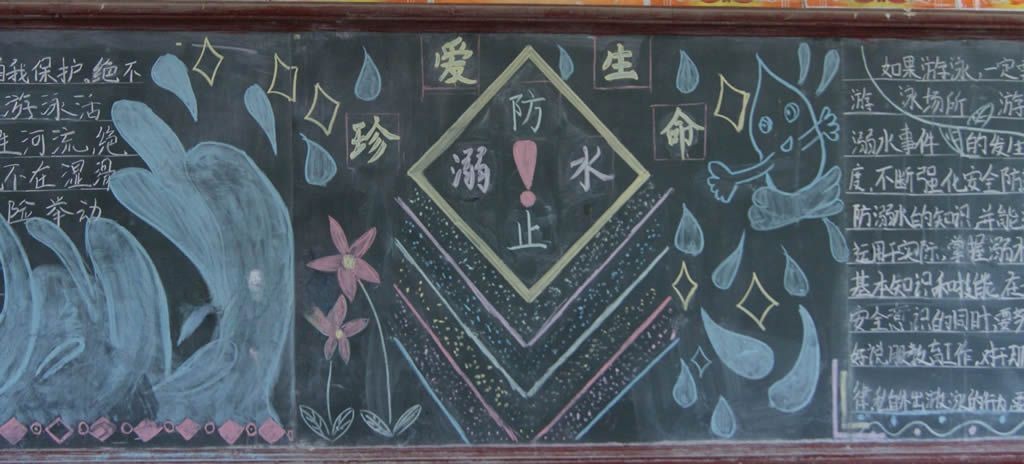 自我保护,绝不
游泳活
河流,绝
不在湿滑
险举动
珍爱生命
防止溺水
!
如果游泳,一定
游泳场所,游
溺水事件的发生
度,不断强化安全防
防溺水的知识,并能
运用于实际,掌握溺水
基本知识和技能,在
安全意识的同时要
教育工作,对于那